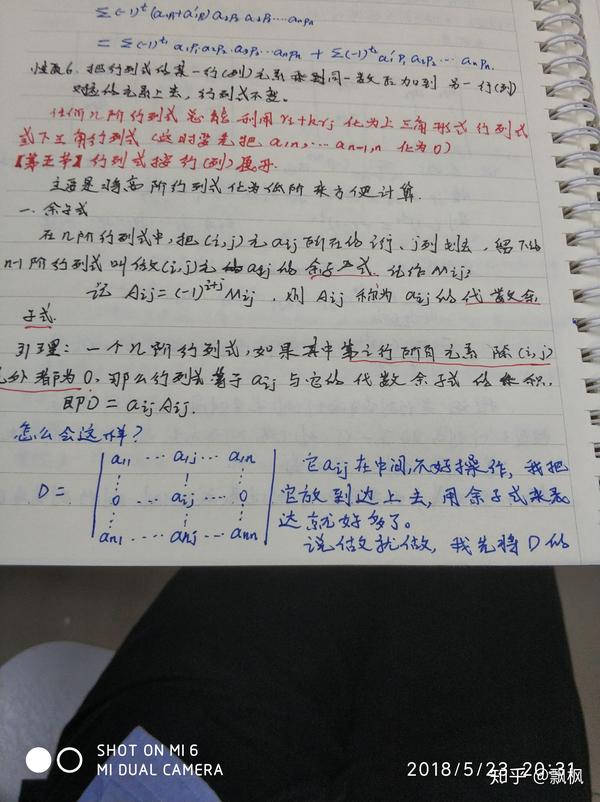 Σ(-1)^t (a1P1+a'1P1) a2P2 a3P3 ⋯ anPn
= Σ(-1)^t a1P1 a2P2 a3P3 ⋯ anPn + Σ(-1)^t a'1P1 a2P2 ⋯ anPn.
性质6. 把行列式的某一行(列)元素乘到同一数后加到另一行(列)
对应的元素上去，行列式不变。
任何n阶行列式总能利用ri+krj化为上三角形式行列式
或下三角行列式（这时要先把a1n, ⋯ an-1,n 化为0）
【第五节】行列式按行(列)展开.
主要是将高阶行列式化为低阶来方便计算.
一. 余子式
在n阶行列式中，把(i,j)元aij所在的i行、j列划去，留下的
n-1阶行列式叫做(i,j)元aij的余子式. 记作Mij;
记 Aij=(-1)^{i+j}Mij，则Aij称为aij的代数余
子式.
引理：一个n阶行列式，如果其中第i行所有元素除(i,j)
元外都为0，那么行列式等于aij与它的代数余子式的乘积.
即D = aij Aij.
怎么会这样?
D = | a11 ⋯ a1j ⋯ a1n |
⋮ ⋮ ⋮
0 ⋯ aij ⋯ 0
⋮ ⋮ ⋮
an1 ⋯ anj ⋯ ann
它aij在中间，不好操作，我把
它放到边上去，用余子式来表
达就好多了。
说做就做，我先将D的
SHOT ON MI 6
MI DUAL CAMERA
2018/5/23 20:31
知乎 @飘枫